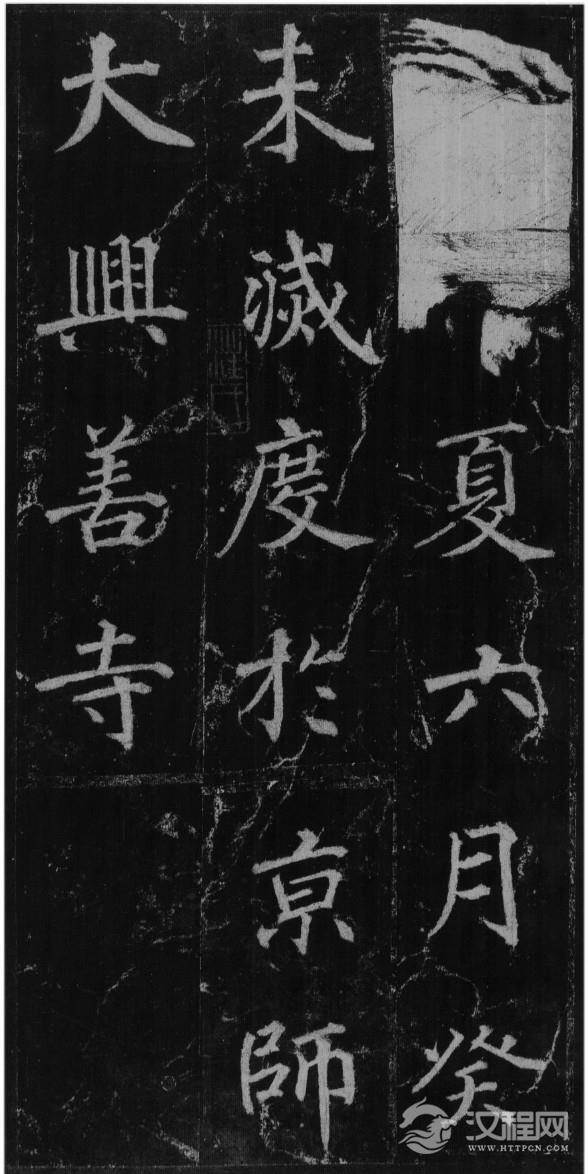 夏六月癸
未滅度於京師
大興善寺
汉程网
WWW.HTTPCN.COM